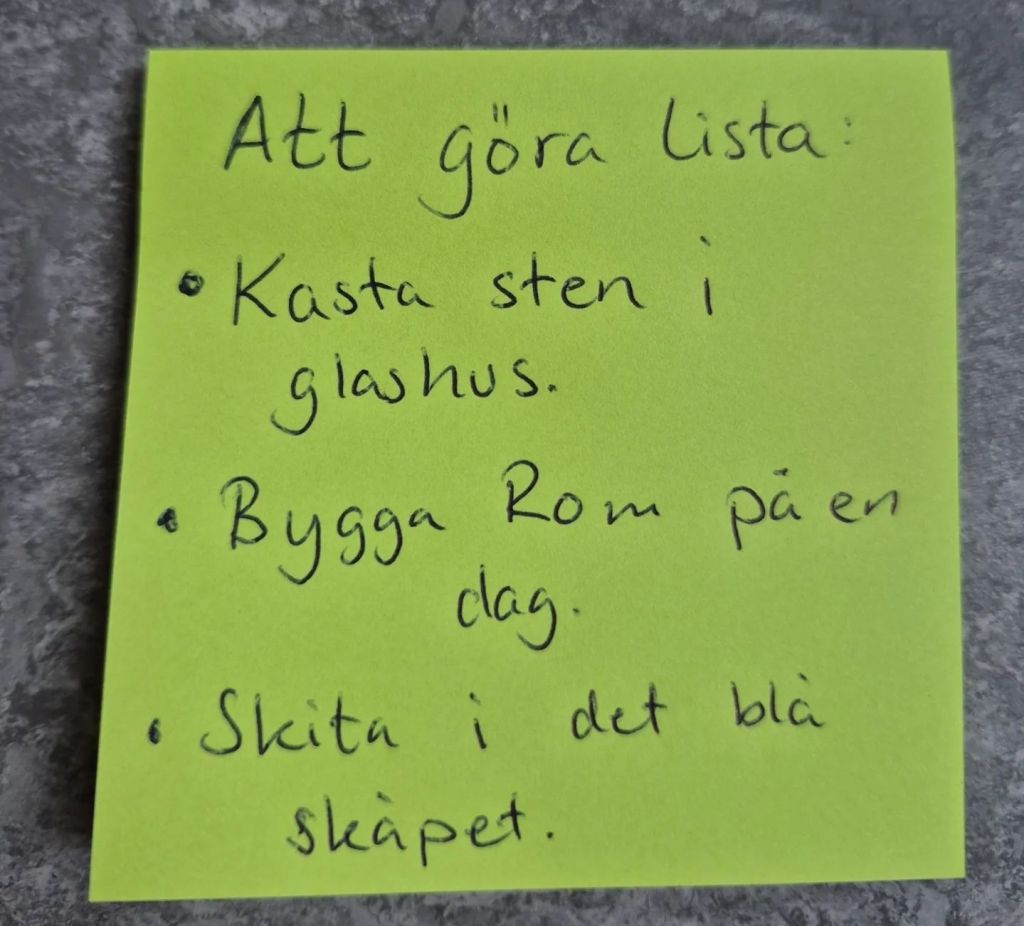 Att göra lista:
• Kasta sten i
glashus.
• Bygga Rom på en
dag.
• Skita i det blå
skåpet.